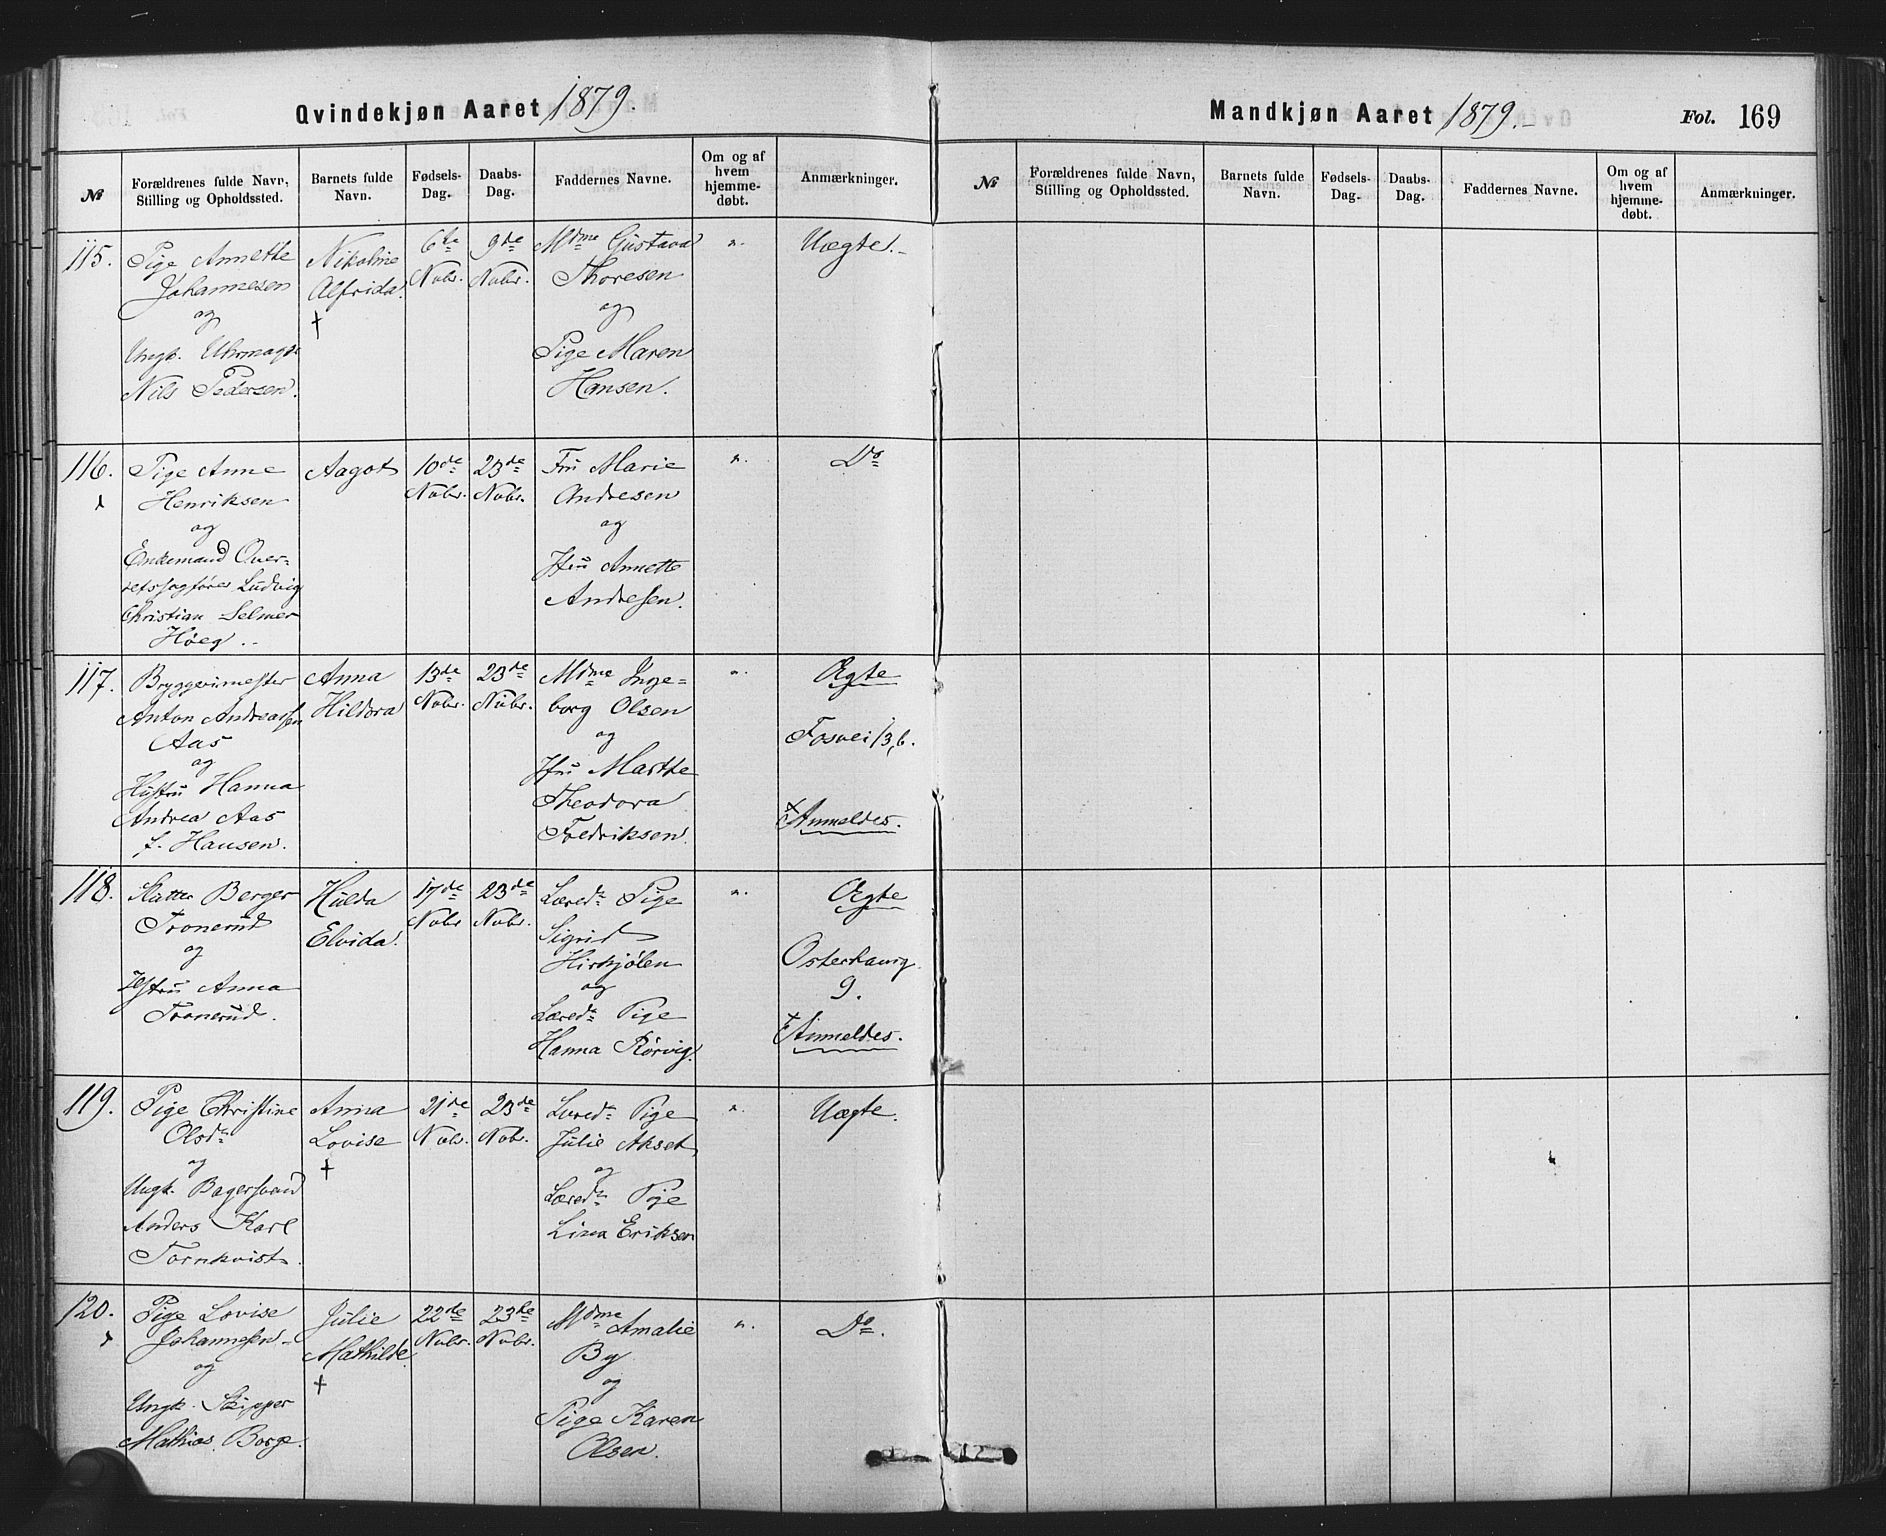 Qvindekjøn Aaret 1879.
№
Forældrenes fulde Navn,
Stilling og Opholdssted.
Barnets fulde
Navn.
Fødsels-
Dag.
Daabs-
Dag.
Faddernes Navne.
Om og af
hvem
hjemme-
døbt.
Anmærkninger.
115.
Pige Annette
Johannesen
og
Ungk. Uhrmager
Nils Pedersen.
Nikoline
Alfrida.
†
6te
Nobr.
9de
Nobr.
Mdme Gustava
Thoresen
og
Pige Maren
Hansen.
"
Uægte.
116.
Pige Anne
Henriksen
og
Enkemand Over-
retssagfører Ludvig
Christian Selmer
Høeg.
Aagot
10de
Nobr.
23de
Nobr.
Fru Marie
Andresen
og
Jfru Annette
Andresen.
"
Do
117.
Bryggerimester
Anton Andreassen
Aas
og
Hustru Hanna
Andrea Aas
f. Hansen.
Anna
Hildora
13de
Nobr.
23de
Nobr.
Mdme Inge-
borg Olsen
og
Jfru Marthe
Theodora
Fredriksen.
"
Ægte
Fosvei 13,b.
Anmeldes.
118.
Berger
Tronerud
og
Hstru Anna
Tronerud.
Hulda
Elvida.
17de
Nobr.
23de
Nobr.
Læred. Pige
Sigrid
Hirkjølen
og
Læred. Pige
Hanna Rørvig.
"
Ægte
Osterhausg.
9.
Anmeldes.
119.
Pige Christine
Olsdr
og
Ungk. Bagersvend
Anders Karl
Tornkvist.
Anna
Lovise
†
21de
Nobr.
23de
Nob.
Læred. Pige
Julie Akset
og
Læred. Pige
Lina Eriksen
"
Uægte.
120.
Pige Lovise
Johannesen
og
Ungk. Skipper
Mathias Borge.
Julie
Mathilde
†
22de
Nobr.
23de
Nobr.
Mdme Amalie
By
og
Pige Karen
Olsen.
"
Do.
Mandkjøn Aaret 1879.
Fol. 169
№
Forældrenes fulde Navn,
Stilling og Opholdssted.
Barnets fulde
Navn.
Fødsels-
Dag.
Daabs-
Dag.
Faddernes Navne.
Om og af
hvem
hjemme-
døbt.
Anmærkninger.